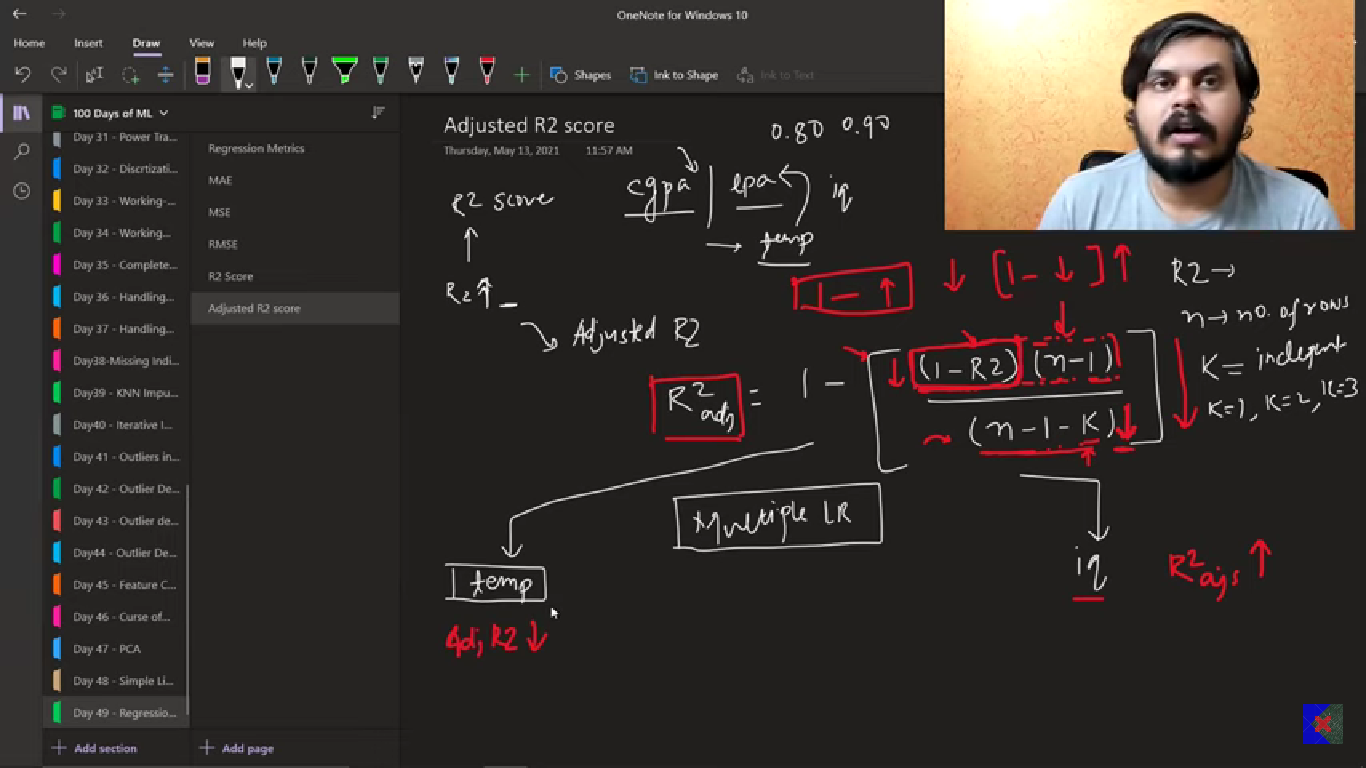 OneNote for Windows 10
Home Insert Draw View Help
Shapes Ink to Shape Ink to Text
100 Days of ML
Day 31 - Power Tra...
Day 32 - Discrtizati...
Day 33 - Working-...
Day 34 - Working...
Day 35 - Complete...
Day 36 - Handling...
Day 37 - Handling...
Day38-Missing Indi...
Day39 - KNN Impu...
Day40 - Iterative I...
Day 41 - Outliers in...
Day 42 - Outlier De...
Day 43 - Outlier de...
Day44 - Outlier De...
Day 45 - Feature C...
Day 46 - Curse of...
Day 47 - PCA
Day 48 - Simple Li...
Day 49 - Regressio...
Add section
Regression Metrics
MAE
MSE
RMSE
R2 Score
Adjusted R2 score
Add page
Adjusted R2 score
Thursday, May 13, 2021 11:57 AM
0.80 0.90
R2 score
cgpa | lpa iq
→ temp
R2 ↑
Adjusted R2
1 - ↑ ↓ [1 - ↓] ↑
R2 →
n → no. of rows
K = indepent
K=1, K=2, K=3
R²adj = 1 - [(1-R2)(n-1)
(n-1-K)]
Multiple LR
temp
Adj R2 ↓
iq
R²ajs ↑